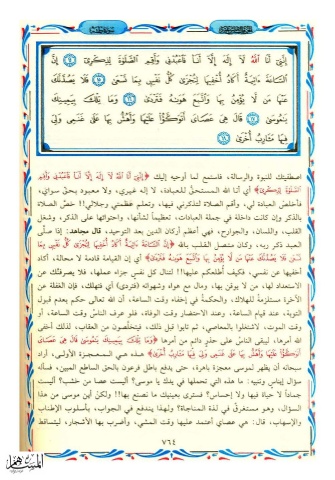 إِنَّنِي أَنَا اللَّهُ لَا إِلَٰهَ إِلَّا أَنَا فَاعْبُدْنِي وَأَقِمِ الصَّلَاةَ لِذِكْرِي ١٤ إِنَّ
السَّاعَةَ ءَاتِيَةٌ أَكَادُ أُخْفِيهَا لِتُجْزَىٰ كُلُّ نَفْسٍ بِمَا تَسْعَىٰ ١٥ فَلَا يَصُدَّنَّكَ
عَنْهَا مَن لَّا يُؤْمِنُ بِهَا وَاتَّبَعَ هَوَاهُ فَتَرْدَىٰ ١٦ وَمَا تِلْكَ بِيَمِينِكَ
يَامُوسَىٰ ١٧ قَالَ هِيَ عَصَايَ أَتَوَكَّأُ عَلَيْهَا وَأَهُشُّ بِهَا عَلَىٰ غَنَمِي وَلِيَ
فِيهَا مَآرِبُ أُخْرَىٰ ١٨
اصطفيتك للنبوة والرسالة، فاستمع لما أوحيه إليك ﴿إِنَّنِي أَنَا اللَّهُ لَا إِلَٰهَ إِلَّا أَنَا فَاعْبُدْنِي وَأَقِمِ
الصَّلَاةَ لِذِكْرِي﴾ أي أنا الله المستحقُّ للعبادة، لا إله غيري، ولا معبود بحق سواي،
فأخلص العبادة لي، وأقم الصلاة لتذكرني فيها، وتعلم عظمتي وجلالي!! خصَّ الصلاة
بالذكر وإن كانت داخلة في جملة العبادات، تعظيماً لشأنها، واحتوائها على الذكر، وشغل
القلب، واللسان، والجوارح، فهي أعظم أركان الدين بعد التوحيد، قال مجاهد: إذا صلَّى
العبد ذكر ربه، وكان متصل القلب بالله ﴿إِنَّ السَّاعَةَ ءَاتِيَةٌ أَكَادُ أُخْفِيهَا لِتُجْزَىٰ كُلُّ نَفْسٍ بِمَا
تَسْعَىٰ فَلَا يَصُدَّنَّكَ عَنْهَا مَن لَّا يُؤْمِنُ بِهَا وَاتَّبَعَ هَوَاهُ فَتَرْدَىٰ﴾ أي إن القيامة قادمة لا محالة، أكاد
أخفيها عن نفسي، فكيف أطلعكم عليها!! لتنال كل نفس جزاء عملها، فلا يصرفنَّك عن
الاستعداد لها، من لا يوقن بها، ومال مع هواه وشهواته (فتردى) أي فتهلك، فإن الغفلة عن
الآخرة مستلزمةٌ للهلاك، والحكمةُ في إخفاء وقت الساعة، أن الله تعالى حكم بعدم قبول
التوبة، عند قيام الساعة، وعند الاحتضار وقت الوفاة، فلو عرف الناسُ وقت الساعة، أو
وقت الموت، لاشتغلوا بالمعاصي، ثم تابوا قبل ذلك، فيتخلَّصون من العقاب، لذلك أخفى
الله أمرها، ليبقى الناسُ على حذرٍ دائم من أمرها ﴿وَمَا تِلْكَ بِيَمِينِكَ يَامُوسَىٰ قَالَ هِيَ عَصَايَ
أَتَوَكَّأُ عَلَيْهَا وَأَهُشُّ بِهَا عَلَىٰ غَنَمِي وَلِيَ فِيهَا مَآرِبُ أُخْرَىٰ﴾ هذه هي المعجزة الأولى، أراد
سبحانه أن يظهر لموسى معجزة باهرة، حتى يدفع باطل فرعون بالحق الساطع المبين، فسأله
سؤال إيناسٍ وتنبيه: ما هذه التي تحملها في يدك يا موسى؟ أليست عصا من خشب؟ أليست
جماداً لا حياة فيها ولا إحساس؟ فسترى بعينيك ما نصنع بها!! ولكن أين موسى من هذا
السؤال، وهو مستغرقٌ في لذة المناجاة؟ ولهذا يندفع في الجواب، بأسلوب الإطناب
والإسهاب، قال: هي عصاي أعتمد عليها وقت المشي، وأضرب بها الأشجار، ليتساقط
٧٦٤